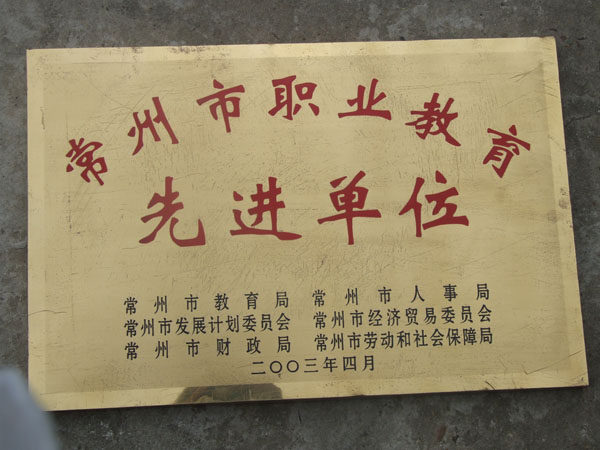 常州市职业教育
先进单位
常州市教育局 常州市人事局
常州市发展计划委员会 常州市经济贸易委员会
常州市财政局 常州市劳动和社会保障局
二〇〇三年四月